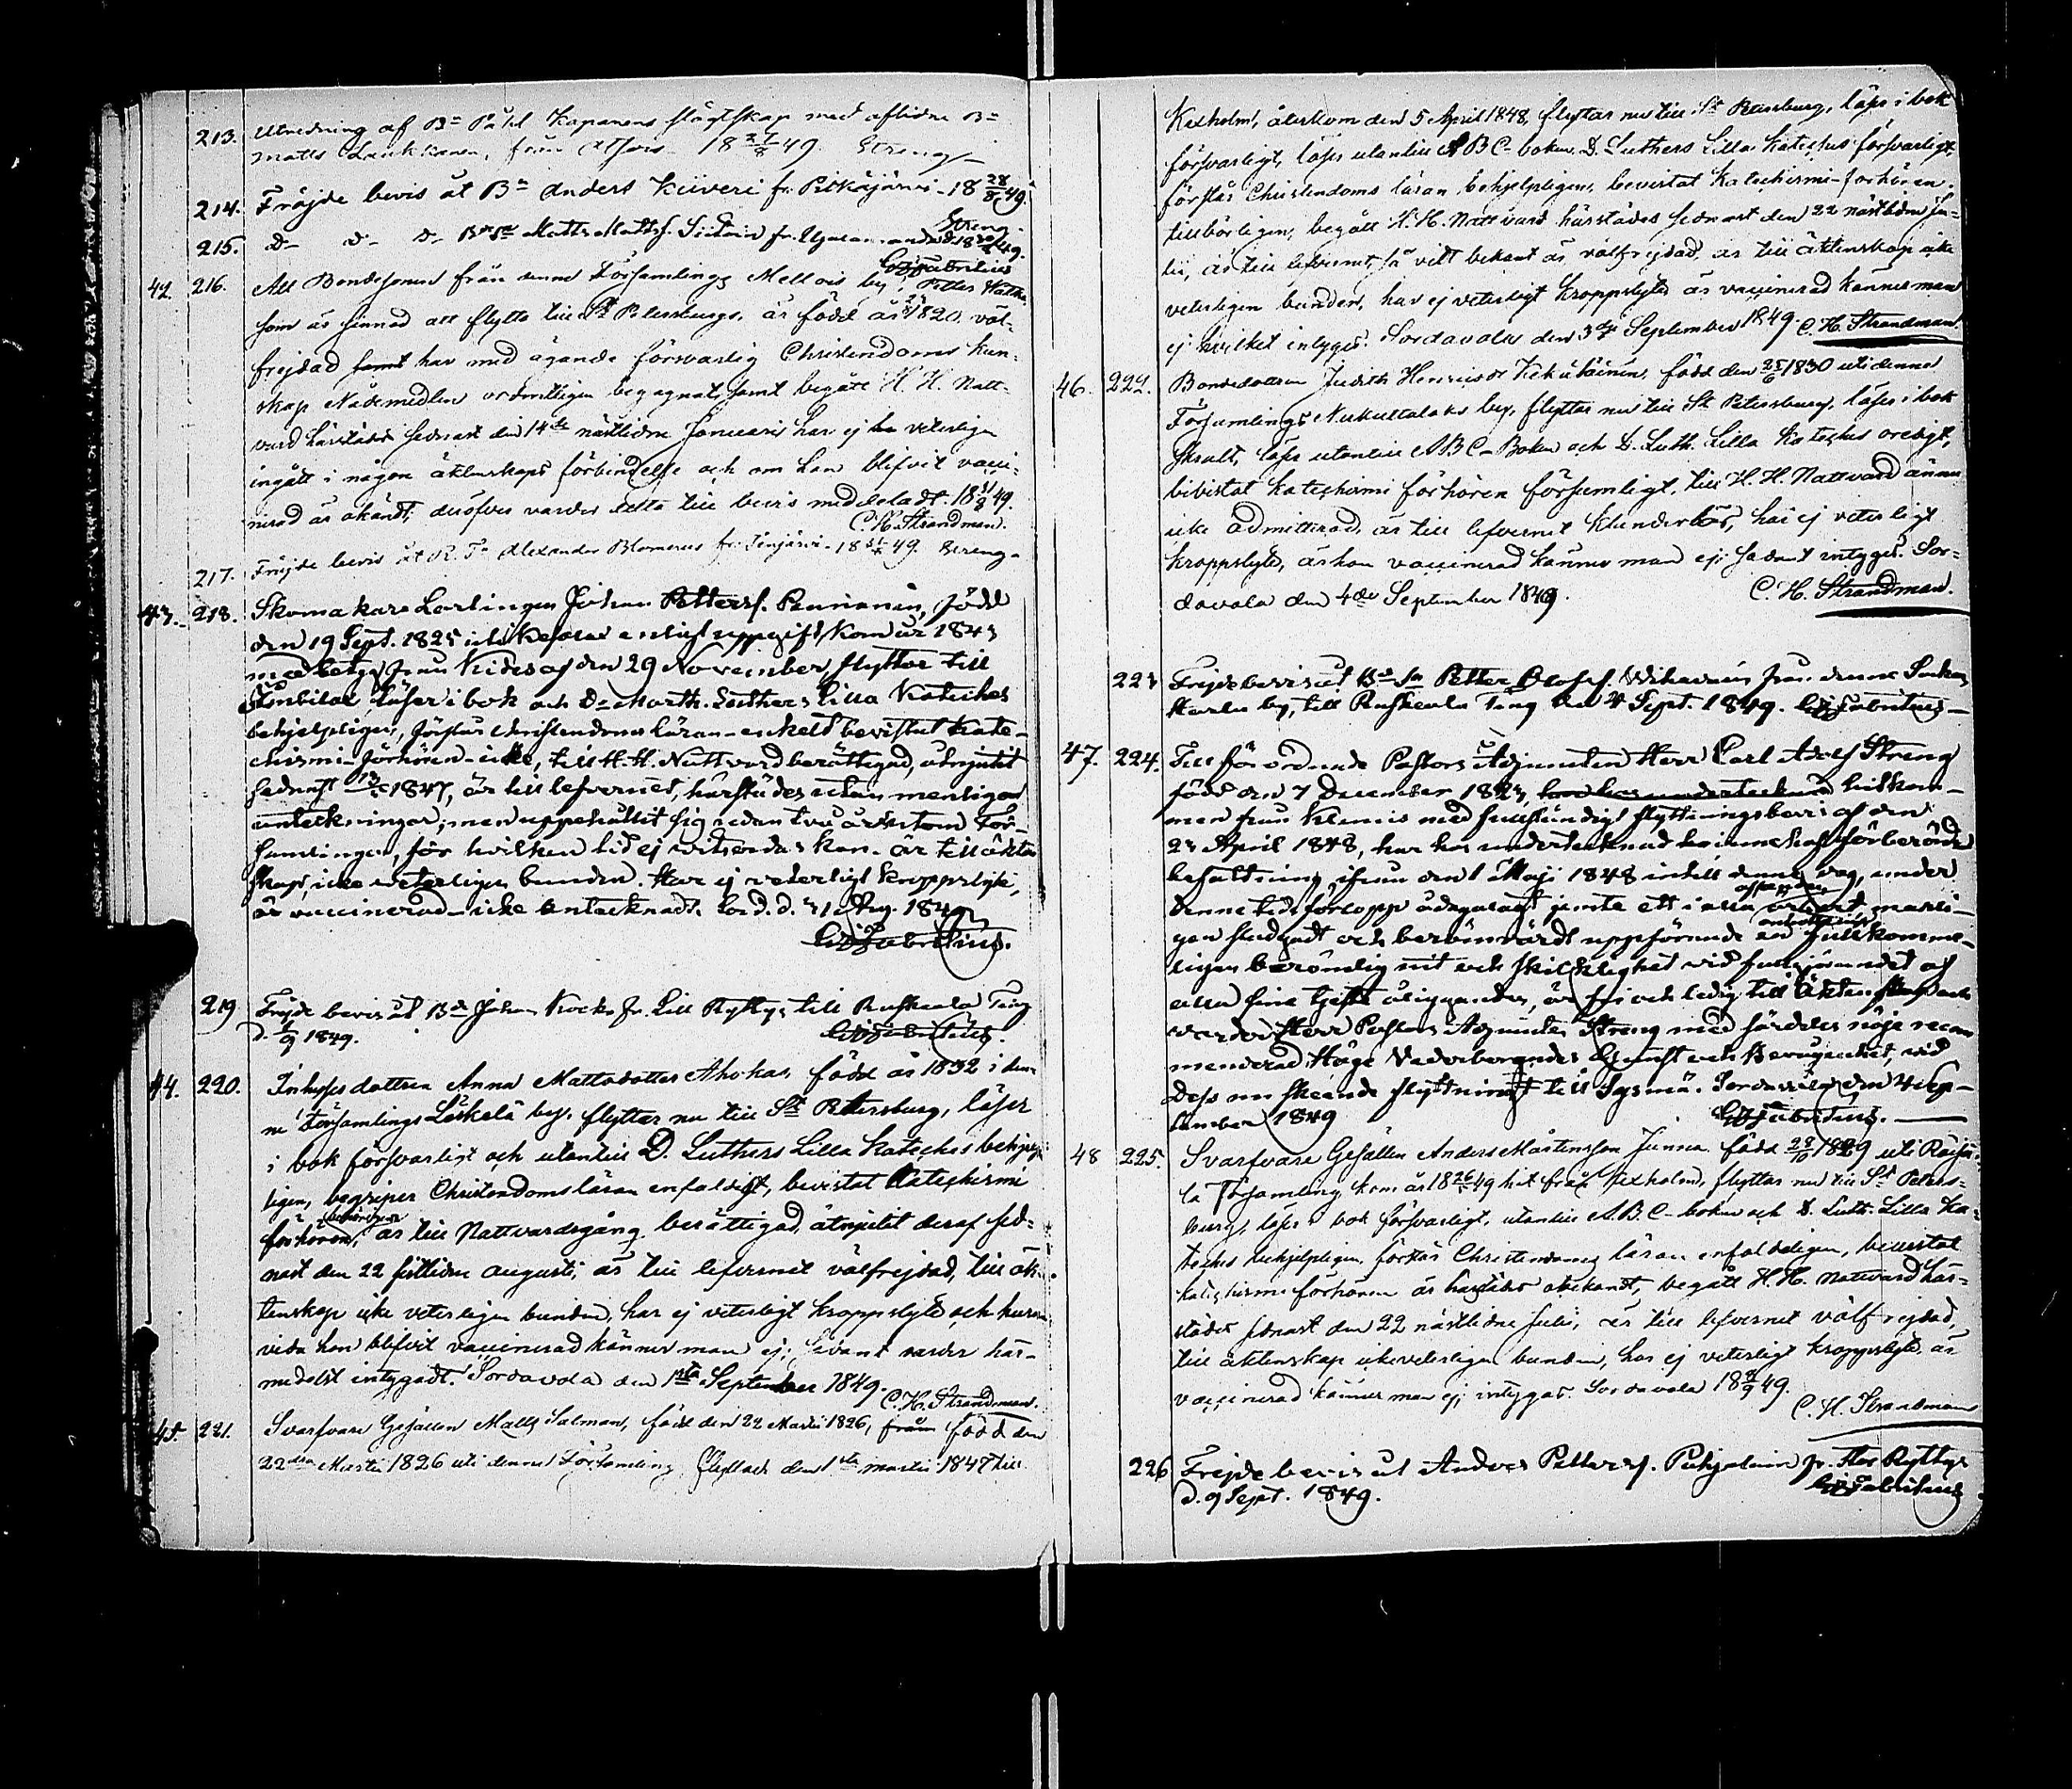 213. Utredning af Bn Påhl Kapanens slägtskap med aflidne Bn
Matts Laukkanen, från Otsois 18 27/8 49. Streng
214. Fräjde bevis åt Bn Anders Kiiveri fr. Pitkäjärvi 18 28/8 49.
Streng
215. D- D- D- Matts Mattss. fr. 49.
Fabritius
42. 216. Att Bondesonen från denne Församlings Mellois by, Petter
som är sinnad att flytta till St Petersburg, är född år 1820, väl-
frejdad samt har med ägande försvarlig Christendoms kun-
skap Nådemedlen ordentligen begagnat, samt begått H. H. Natt-
vard härstädes sednast den 14de nästlidne Januarii har ej veterligen
ingått i någon äktenskaps förbindelse och om han blifvit vacci-
nerad är okändt, derofver varder detta till bevis meddeladt. 18 31/8 49.
C. H. Strandman.
217. Fräjde bevis åt Alexander Blomerus fr. 18 31/8 49. Streng
43. 218. Skomakare Lärlingen Johan Petterss. Pennanen, född
den 19 Sept. 1825 enligt uppgift, kom år 1843
med betyg från Kides af den 29 November, flyttar till
läser i bok och Dr Marth. Luthers Lilla Kateches
behjelpligen, förstår Christendoms läran enkelt bevistat Kate-
chismi Förhören icke, till H. H. Nattvard berättigad, åtnjutit
sednast 1847, är till lefvernet, härstädes utan menliga
anteckningar; men uppehållit sig sedan två år utom För-
samlingen, för hvilken tid ej vitsordas kan. är till äkten-
skap, icke veterligen bunden. Har ej veterligt kroppslyte,
är vaccinerad icke antecknadt. Sord. d. 31 Aug. 1849
Fabritius.
219 Frejde bevis åt Bn Johan Kock fr. Lill Ryttys till Ruskeala Ting
d. 1/9 1849. Fabritius.
44. 220. Inhyses dottren Anna Mattsdotter Ahokas, född år 1832 i den-
ne Församlings Läskelä by, flyttar nu till St Petersburg, läser
i bok försvarligt och utantill D. Luthers Lilla Kateches behjelp-
ligen, begriper Christendomsläran enfaldigt, bevistat Katechismi
förhören, är till Nattvardsgång berättigad, åtnjutit deraf sed-
nast den 22 sistlidne Augusti, är till lefvernet välfrejdad, till äk-
tenskap icke veterligen bunden, har ej veterligt kroppslyte och huru-
vida hon blifvit vaccinerad känner man ej; sådant varder här-
medelst intygadt. Sordavala den 1sta September 1849.
C. H. Strandman.
45. 221. Svarfvare Gesällen Matts Salman, född den 22 Martii 1826, från född den
22dra Martii 1826 uti denna Församling flyttade den 1sta Martii 1847 till
Kexholm, återkom den 5 April 1848, flyttar nu till St Petersburg, läser i bok
försvarligt, läser utantill ABC-boken D. Luthers Lilla Kateches försvarligt,
förstår Christendoms läran behjelpligen, bevistat Katechismi-förhören
tillbörligen, begått H. H. Nattvard härstädes sednast den 22 nästlidne Ju-
lii, är till lefvernet så vidt bekant är välfrejdad, är till äktenskap icke
veterligen bunden, har ej veterligt kroppslyte är vaccinerad känner man
ej hvilket intygas. Sordavala den 3dje September 1849. C. H. Strandman
46. 222. Bondedottren Judith Henricsdr Kekäläinen, född den 25/6 1830 uti denna
Församlings by, flyttar nu till St Petersburg, läser i bok
läser utantill ABC-Boken och D. Luth. Lilla Kateches oredigt,
bevistat Katechismi förhören försumligt, till H. H. Nattvard ännu
icke admitterad, är till lefvernet klanderlös, har ej veterligt
kroppslyte, är hon vaccinerad känner man ej; sådant intygas. Sor-
davala den 4de September 1849. C. H. Strandman.
223 Frejdebevis åt Petter Olofss. från denne Sockens
by, till Ruskeala Ting den 4 Sept. 1849. Fabritius
47. 224. Till förordnade Pastors Adjuncten Herr Carl Adolf Streng
född den 7 December 1823, hitkom-
men från med fullständigt flyttningsbevis af den
23 April 1848, har hos undertecknad
befattning, ifrån den 1 Maji 1848 intill denne dag, under
denne tids förlopp ådagalagt jemte ett i alla
och berömvärdt uppförande fullkomme-
ligen berömlig nit och skicklighet vid fullgörandet af
alla sina tjenste åligganden, är fri och ledig till äktenskap och
varder Herr Pastors Adjuncten Streng med särdeles nöje recom-
menderad Höge Vederbörandes Gunst och Bevågenhet, vid
Dess nu skeende flyttning till Sysmä. Sordavala den 4 Sep-
tember 1849 Fabritius.
48 225. Svarfvare Gesällen Anders Mårtensson Junna född 28/10 1829 uti Räisä-
la Församling, kom år 1849 hit från Kexholm, flyttar nu till St Peters-
burg, läser i bok försvarligt, utantill A.B.C-boken och D. Luth. Lilla Ka-
teches behjelpligen, förstår Christendoms läran enfaldeligen, bevistat
katechismi förhören är härstädes obekant, begått H. H. Nattvard här-
städes sednast den 22 nästlidne Julii, är till lefvernet välfrejdad,
till äktenskap icke veterligen bunden, har ej veterligt kroppslyte, är
vaccinerad känner man ej; intygas. Sordavala 18 8/9 49.
C. H. Strandman
226 Frejde bevis åt Anders Petterss. Puhjolainen fr. Stor Ryttys
d. 9 Sept. 1849. Fabritius